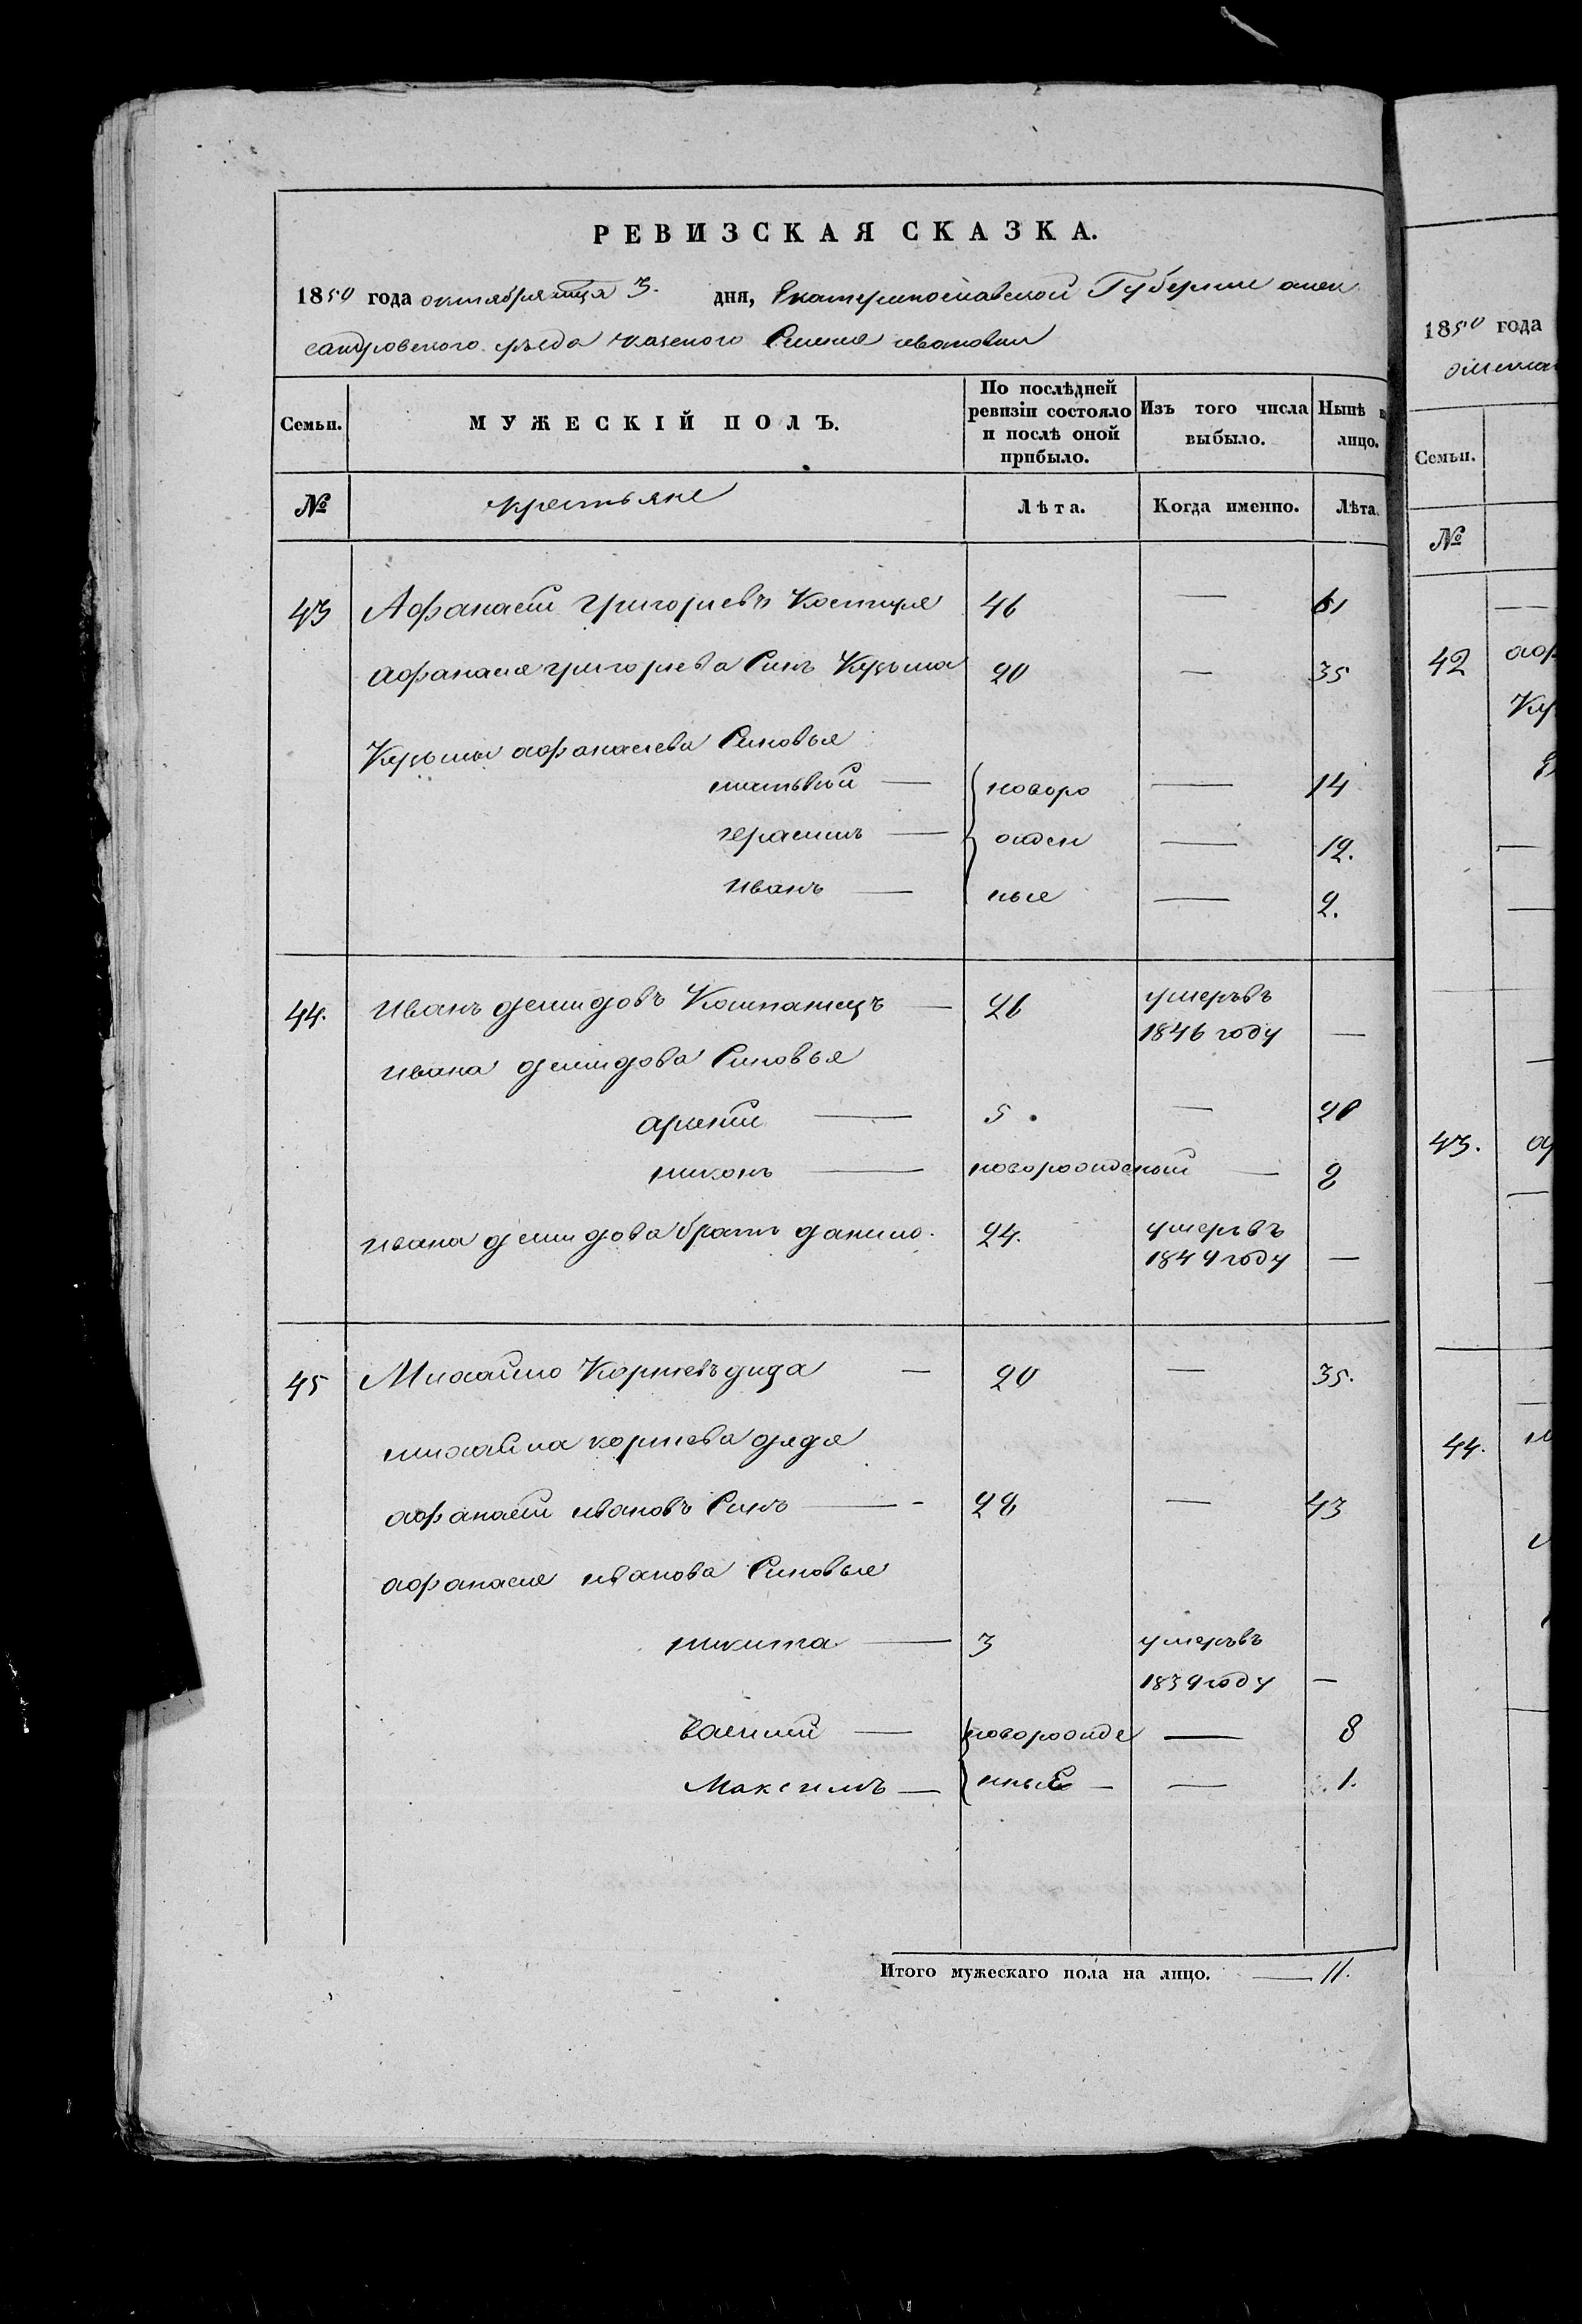 РЕВИЗСКАЯ СКАЗКА.
1850 года октября мця 3. дня, Екатеринославской Губернии алек
сандровского уезда казеного Селения ивановки
Семьи. МУЖЕСКІЙ ПОЛЪ. По послѣдней ревизіи состояло и послѣ оной прибыло. Изъ того числа выбыло. Нынѣ н лицо.
№ крестьяне Лѣта. Когда именно. Лѣта.
43 Афанасій григориевъ Костиря 46 — 61
афанасия григориева Синъ Кузьма 20 — 35
Кузьмы афанасиева Синовья
матвѣй — новоро — 14
герасимъ — жден — 12.
иванъ — ные — 2.
44. иванъ демидовъ Компанецъ — 26 умеръ въ
1846 году —
ивана демидова Синовья
арсений — 5. — 20
никонъ — новорожденый — 2
ивана демидова братъ данило. 24. умеръ въ
1844 году —
45 Михайло Корнеевъ дида — 20 — 35.
михайла корнеева дядя
афанасій ивановъ Синъ — 28 — 43
афанасия иванова Синовья
никита — 3 умеръ въ
1839 году —
василий — новорожде — 8
Максимъ — нные — — 1.
Итого мужескаго пола на лицо. — 11.
1850 года
Семьи.
№
42 аф
Ку
43. а
44.